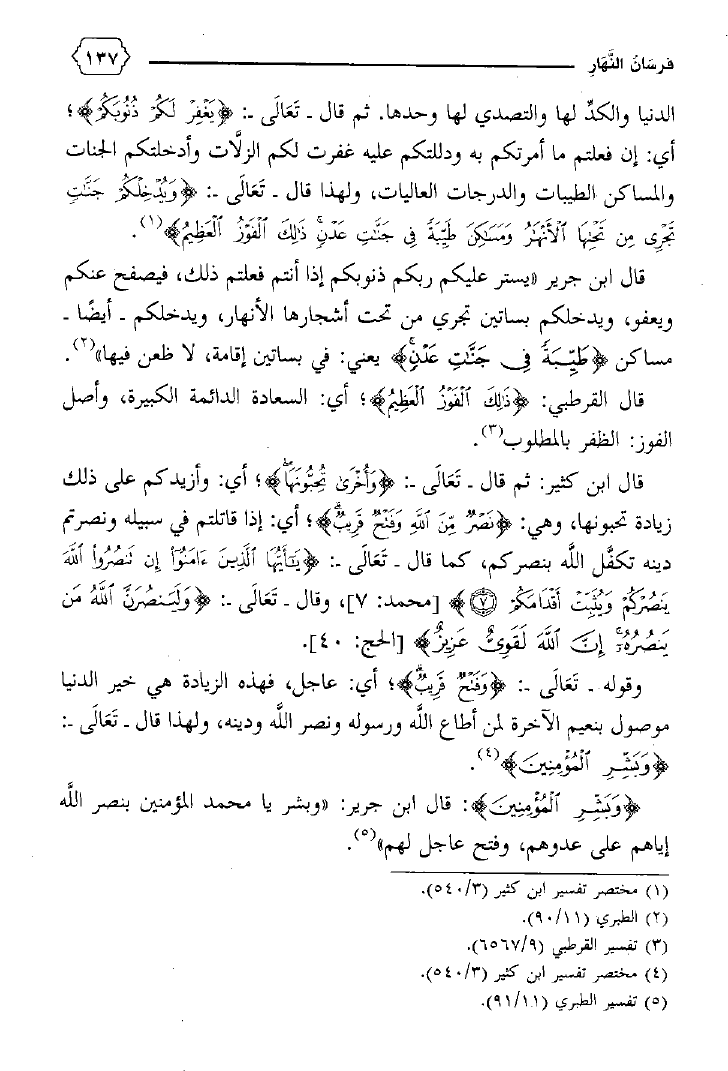 فرسَانُ النَّهَارِ
١٣٧
الدنيا والكدِّ لها والتصدي لها وحدها. ثم قال ـ تَعَالَى ـ: ﴿يَغْفِرْ لَكُمْ ذُنُوبَكُمْ﴾؛
أي: إن فعلتم ما أمرتكم به ودللتكم عليه غفرت لكم الزلَّات وأدخلتكم الجنات
والمساكن الطيبات والدرجات العاليات، ولهذا قال ـ تَعَالَى ـ: ﴿وَيُدْخِلْكُمْ جَنَّٰتٍ
تَجْرِى مِن تَحْتِهَا ٱلْأَنْهَٰرُ وَمَسَٰكِنَ طَيِّبَةً فِى جَنَّٰتِ عَدْنٍ ۚ ذَٰلِكَ ٱلْفَوْزُ ٱلْعَظِيمُ﴾(١).
قال ابن جرير «يستر عليكم ربكم ذنوبكم إذا أنتم فعلتم ذلك، فيصفح عنكم
ويعفو، ويدخلكم بساتين تجري من تحت أشجارها الأنهار، ويدخلكم ـ أيضًا ـ
مساكن ﴿طَيِّبَةً فِى جَنَّٰتِ عَدْنٍ ۚ﴾ يعني: في بساتين إقامة، لا ظعن فيها»(٢).
قال القرطبي: ﴿ذَٰلِكَ ٱلْفَوْزُ ٱلْعَظِيمُ﴾؛ أي: السعادة الدائمة الكبيرة، وأصل
الفوز: الظفر بالمطلوب(٣).
قال ابن كثير: ثم قال ـ تَعَالَى ـ: ﴿وَأُخْرَىٰ تُحِبُّونَهَا ۖ﴾؛ أي: وأزيدكم على ذلك
زيادة تحبونها، وهي: ﴿نَصْرٌ مِّنَ ٱللَّهِ وَفَتْحٌ قَرِيبٌ ۗ﴾؛ أي: إذا قاتلتم في سبيله ونصرتم
دينه تكفَّل اللَّه بنصركم، كما قال ـ تَعَالَى ـ: ﴿يَٰٓأَيُّهَا ٱلَّذِينَ ءَامَنُوٓا۟ إِن تَنصُرُوا۟ ٱللَّهَ
يَنصُرْكُمْ وَيُثَبِّتْ أَقْدَامَكُمْ ٧﴾ [محمد: ٧]، وقال ـ تَعَالَى ـ: ﴿وَلَيَنصُرَنَّ ٱللَّهُ مَن
يَنصُرُهُۥٓ ۗ إِنَّ ٱللَّهَ لَقَوِىٌّ عَزِيزٌ﴾ [الحج: ٤٠].
وقوله ـ تَعَالَى ـ: ﴿وَفَتْحٌ قَرِيبٌ ۗ﴾؛ أي: عاجل، فهذه الزيادة هي خير الدنيا
موصول بنعيم الآخرة لمن أطاع اللَّه ورسوله ونصر اللَّه ودينه، ولهذا قال ـ تَعَالَى ـ:
﴿وَبَشِّرِ ٱلْمُؤْمِنِينَ﴾(٤).
﴿وَبَشِّرِ ٱلْمُؤْمِنِينَ﴾: قال ابن جرير: «وبشر يا محمد المؤمنين بنصر اللَّه
إياهم على عدوهم، وفتح عاجل لهم»(٥).
(١) مختصر تفسير ابن كثير (٥٤٠/٣).
(٢) الطبري (٩٠/١١).
(٣) تفسير القرطبي (٦٥٦٧/٩).
(٤) مختصر تفسير ابن كثير (٥٤٠/٣).
(٥) تفسير الطبري (٩١/١١).